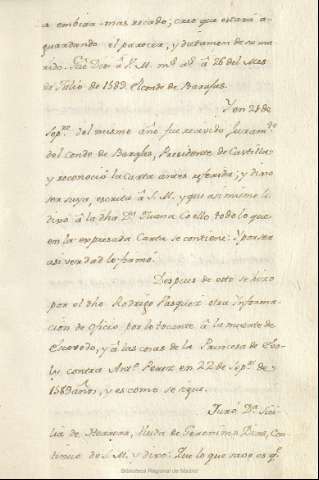 a embiar mas recado; creo que estará a-
guardando el parecer, y dictamen de su ma-
rido. Gu.e Dios á V. M. m.s a.s á 26 del Mes
de Julio de 1589. El conde de Barajas.
Y en 21 de
Sep.re del mismo año fue recivido Juram.to
del conde de Barajas, Presidente de Castilla
y reconoció la Carta antes referida; y dixo
ser suya, escrita á S. M. y que asimismo le
dixo á la dha D.a Juana Coello todo lo que
en la expresada Carta se contiene: Y por ser
asi verdad lo firmó.
Despues de esto se hizo
por el dho Rodrigo Vasquez otra Informa-
cion de Oficio por lo tocante á la muerte de
Escovedo, y á las cosas de la Princesa de Ebo-
ly contra Ant.o Perez en 22 de Sep.re de
1589 años, y es como se sigue.
Juró D.a
lia de Herrera, Viuda de Geronimo Diaz, Con-
tinuo de S. M. y dixo: Que lo que save es q.e
Biblioteca Regional de Madrid